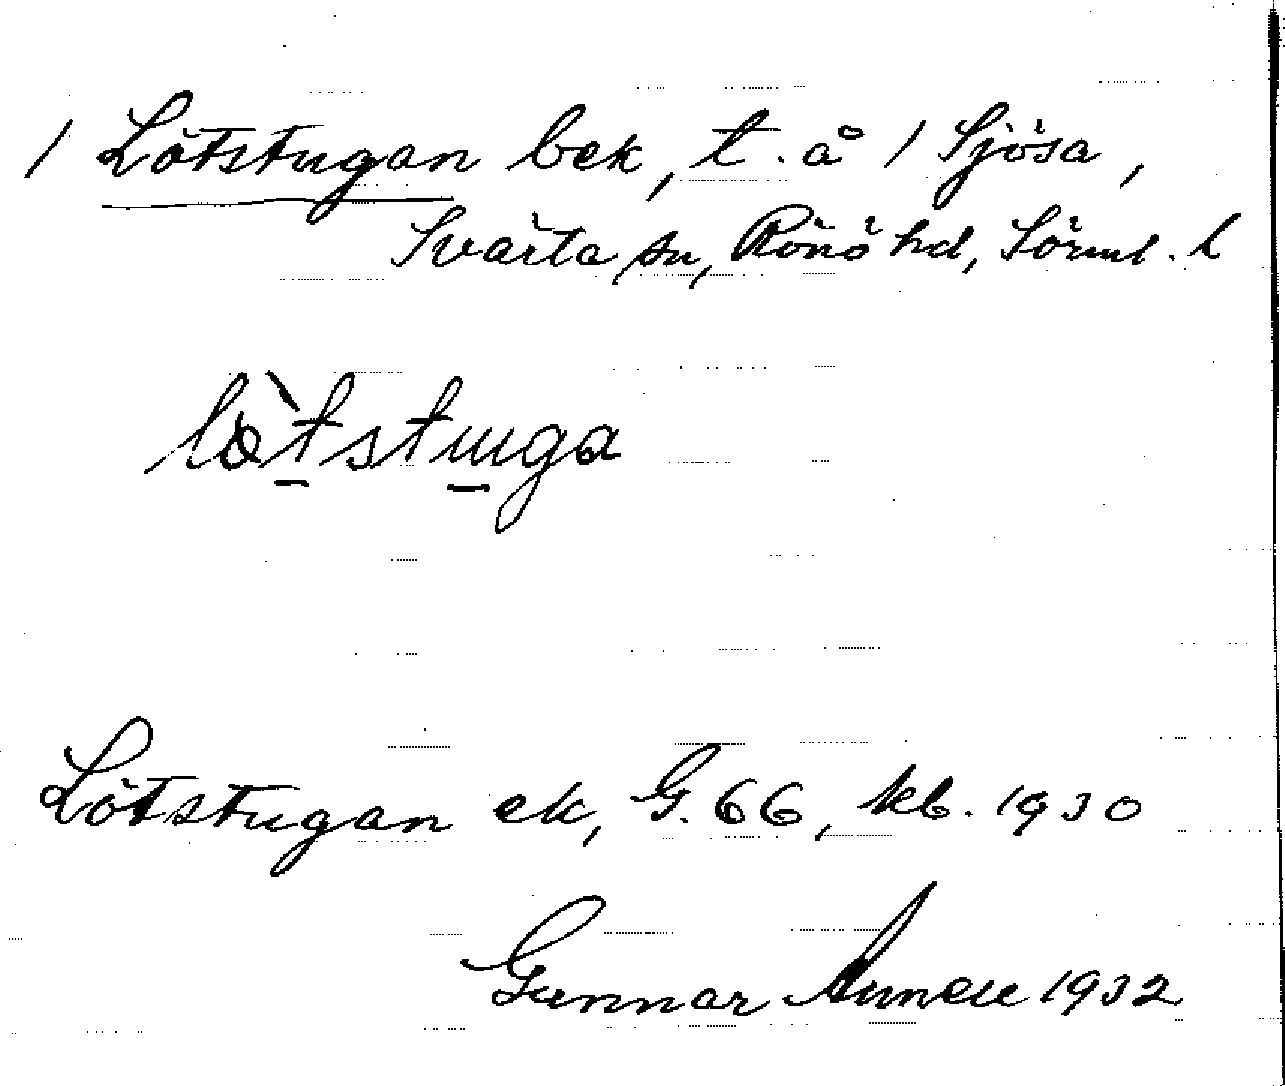 / Lötstugan bek, t. å / Sjösa,
Svärta sn, Rönö hd, Sörml. l
lö̀tstuga
Lötstugan ek, G. 66, kb. 1930
Gunnar 1932